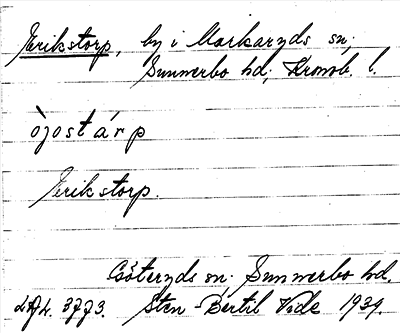 Erikstorp, by i Markaryds sn;
Sunnerbo hd; Kronob. l.
òjostárp
Erikstorp.
Göteryds sn. Sunnerbo hd.
LAL. 3773. Sten-Bertil Vide 1939.